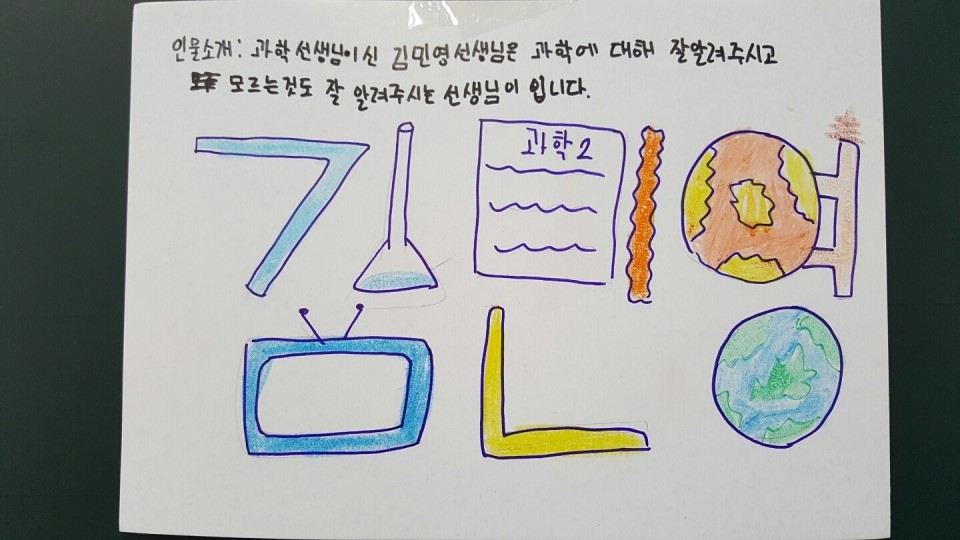 인물소개: 과학선생님이신 김민영선생님은 과학에 대해 잘알려주시고
모르는것도 잘 알려주시는 선생님이 입니다.
과학2
김민영